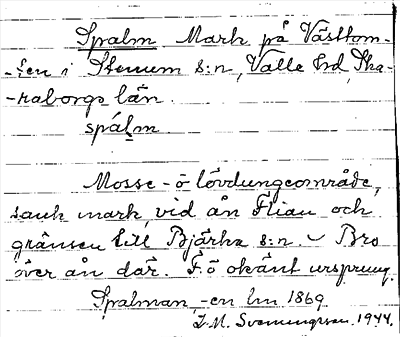 Spalm Mark på Västtom-
-ten i Stenum s:n, Valle hd, Ska-
-raborgs län.
spálm
Mosse- o lövdungeområde,
sank mark, vid ån Flian och
gränsen till Bjärka s:n. – Bro
över ån där. F. ö okänt ursprung.
Spalman, -en lm 1869
J. M. Svenungsson. 1944.